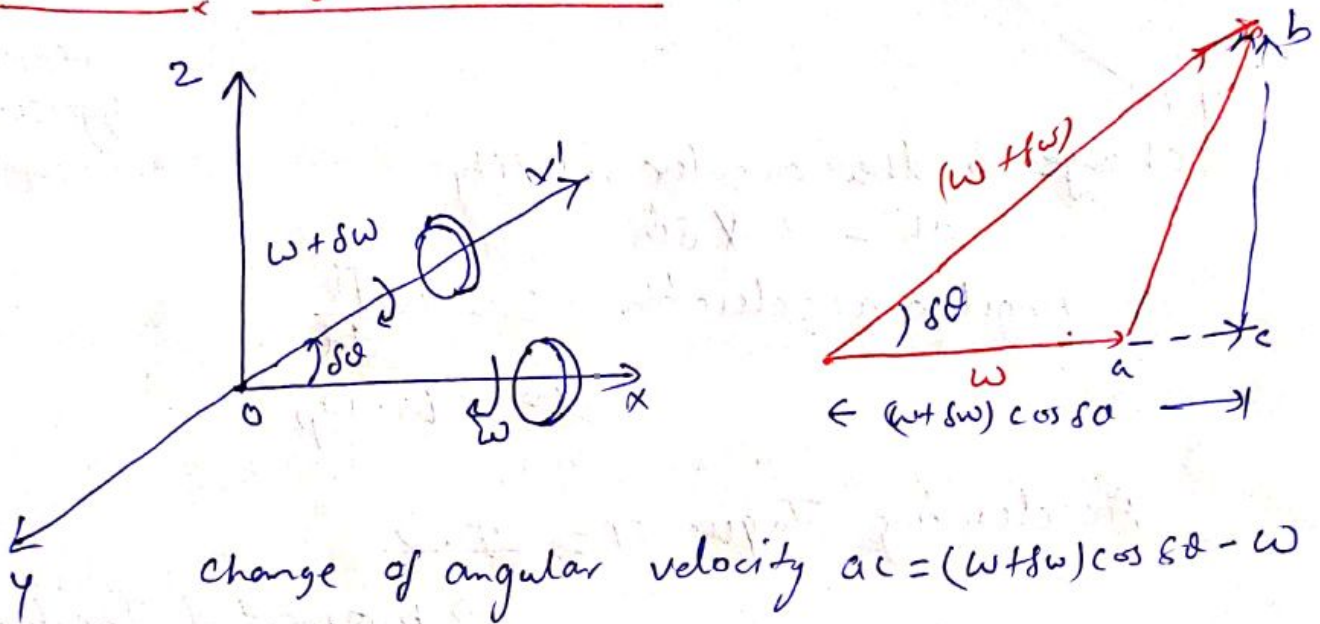 Z
x'
ω + δω
δθ
O
x
ω
y
b
(ω + δω)
δθ
ω
a
c
← (ω+δω) cos δθ →
change of angular velocity ac = (ω+δω) cos δθ - ω